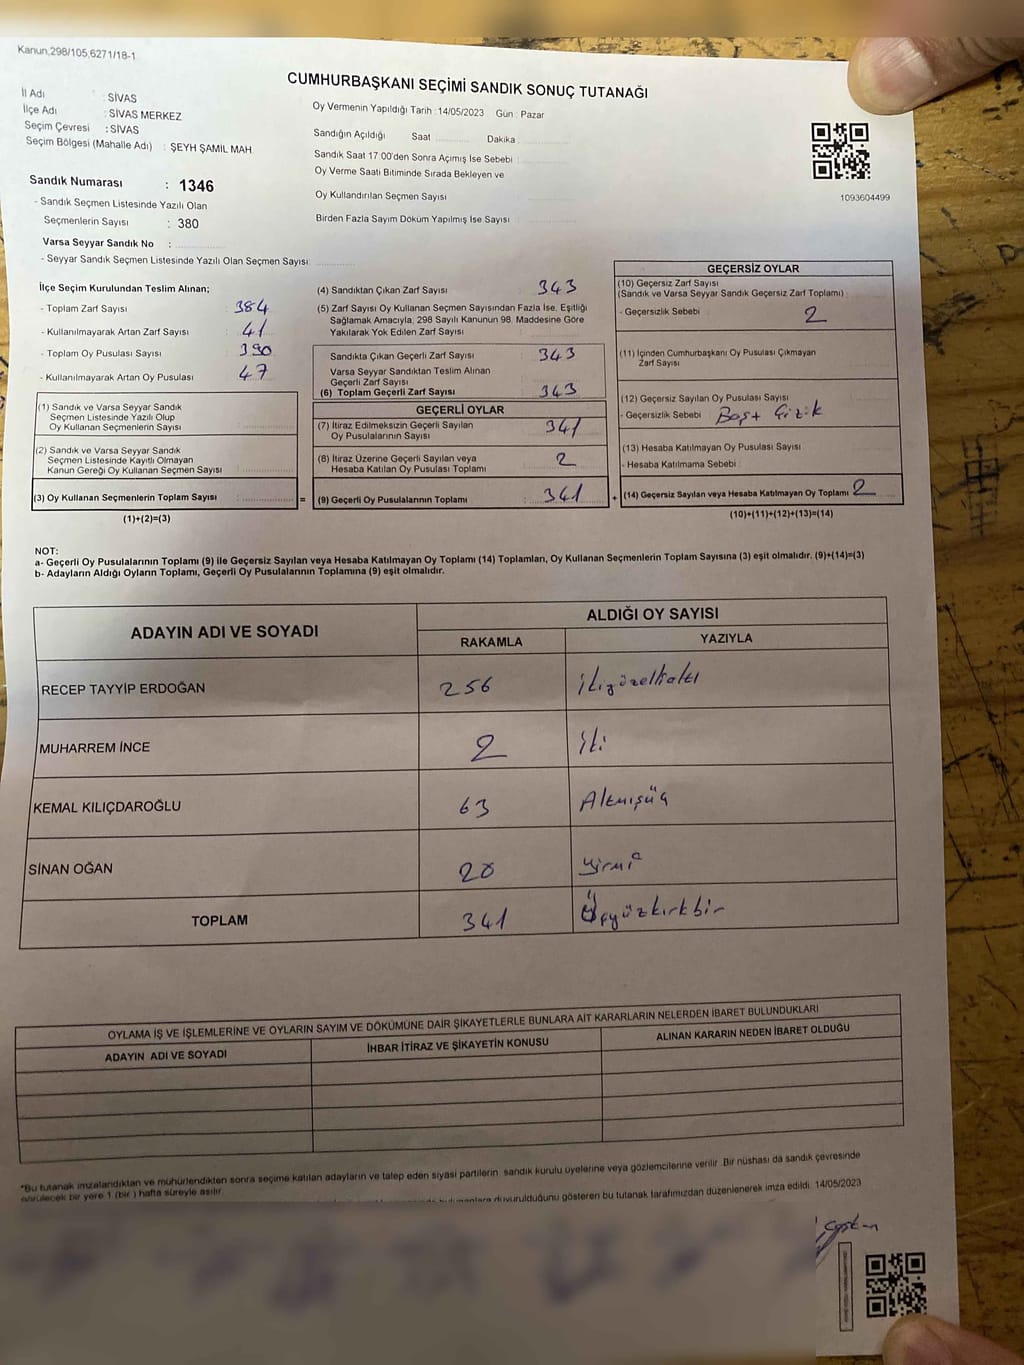 Kanun,298/105,6271/18-1
CUMHURBAŞKANI SEÇİMİ SANDIK SONUÇ TUTANAĞI
İl Adı : SİVAS
İlçe Adı : SİVAS MERKEZ
Seçim Çevresi : SİVAS
Seçim Bölgesi (Mahalle Adı) : ŞEYH ŞAMİL MAH.
Sandık Numarası : 1346
- Sandık Seçmen Listesinde Yazılı Olan
Seçmenlerin Sayısı : 380
Varsa Seyyar Sandık No :
- Seyyar Sandık Seçmen Listesinde Yazılı Olan Seçmen Sayısı:
Oy Vermenin Yapıldığı Tarih : 14/05/2023 Gün : Pazar
Sandığın Açıldığı Saat Dakika :
Sandık Saat 17:00'den Sonra Açımış İse Sebebi :
Oy Verme Saati Bitiminde Sırada Bekleyen ve
Oy Kullandırılan Seçmen Sayısı
Birden Fazla Sayım Döküm Yapılmış İse Sayısı :
1093604499
İlçe Seçim Kurulundan Teslim Alınan;
- Toplam Zarf Sayısı : 384
- Kullanılmayarak Artan Zarf Sayısı : 41
- Toplam Oy Pusulası Sayısı : 390
- Kullanılmayarak Artan Oy Pusulası : 47
(1) Sandık ve Varsa Seyyar Sandık
Seçmen Listesinde Yazılı Olup
Oy Kullanan Seçmenlerin Sayısı :
(2) Sandık ve Varsa Seyyar Sandık
Seçmen Listesinde Kayıtlı Olmayan
Kanun Gereği Oy Kullanan Seçmen Sayısı :
(3) Oy Kullanan Seçmenlerin Toplam Sayısı : =
(1)+(2)=(3)
(4) Sandıktan Çıkan Zarf Sayısı : 343
(5) Zarf Sayısı Oy Kullanan Seçmen Sayısından Fazla İse, Eşitliği
Sağlamak Amacıyla, 298 Sayılı Kanunun 98. Maddesine Göre
Yakılarak Yok Edilen Zarf Sayısı :
Sandıkta Çıkan Geçerli Zarf Sayısı : 343
Varsa Seyyar Sandıktan Teslim Alınan
Geçerli Zarf Sayısı :
(6) Toplam Geçerli Zarf Sayısı : 343
GEÇERLİ OYLAR
(7) İtiraz Edilmeksizin Geçerli Sayılan
Oy Pusulalarının Sayısı : 341
(8) İtiraz Üzerine Geçerli Sayılan veya
Hesaba Katılan Oy Pusulası Toplamı : 2
(9) Geçerli Oy Pusulalarının Toplamı : 341 +
GEÇERSİZ OYLAR
(10) Geçersiz Zarf Sayısı
(Sandık ve Varsa Seyyar Sandık Geçersiz Zarf Toplamı) :
- Geçersizlik Sebebi : 2
(11) İçinden Cumhurbaşkanı Oy Pusulası Çıkmayan
Zarf Sayısı :
(12) Geçersiz Sayılan Oy Pusulası Sayısı :
- Geçersizlik Sebebi
(13) Hesaba Katılmayan Oy Pusulası Sayısı :
- Hesaba Katılmama Sebebi :
(14) Geçersiz Sayılan veya Hesaba Katılmayan Oy Toplamı : 2
(10)+(11)+(12)+(13)=(14)
NOT:
a- Geçerli Oy Pusulalarının Toplamı (9) ile Geçersiz Sayılan veya Hesaba Katılmayan Oy Toplamı (14) Toplamları, Oy Kullanan Seçmenlerin Toplam Sayısına (3) eşit olmalıdır. (9)+(14)=(3)
b- Adayların Aldığı Oyların Toplamı, Geçerli Oy Pusulalarının Toplamına (9) eşit olmalıdır.
ADAYIN ADI VE SOYADI ALDIĞI OY SAYISI
RAKAMLA YAZIYLA
RECEP TAYYİP ERDOĞAN 256
MUHARREM İNCE 2 İki
KEMAL KILIÇDAROĞLU 63 Altmışüç
SİNAN OĞAN 20 yirmi
TOPLAM 341 Üçyüzkırkbir
OYLAMA İŞ VE İŞLEMLERİNE VE OYLARIN SAYIM VE DÖKÜMÜNE DAİR ŞİKAYETLERLE BUNLARA AİT KARARLARIN NELERDEN İBARET BULUNDUKLARI
ADAYIN ADI VE SOYADI İHBAR İTİRAZ VE ŞİKAYETİN KONUSU ALINAN KARARIN NEDEN İBARET OLDUĞU
*Bu tutanak imzalandıktan ve mühürlendikten sonra seçime katılan adayların ve talep eden siyasi partilerin sandık kurulu üyelerine veya gözlemcilerine verilir. Bir nüshası da sandık çevresinde
görülecek bir yere 1 (bir) hafta süreyle asılır.
duyurulduğunu gösteren bu tutanak tarafımızdan düzenlenerek imza edildi. 14/05/2023